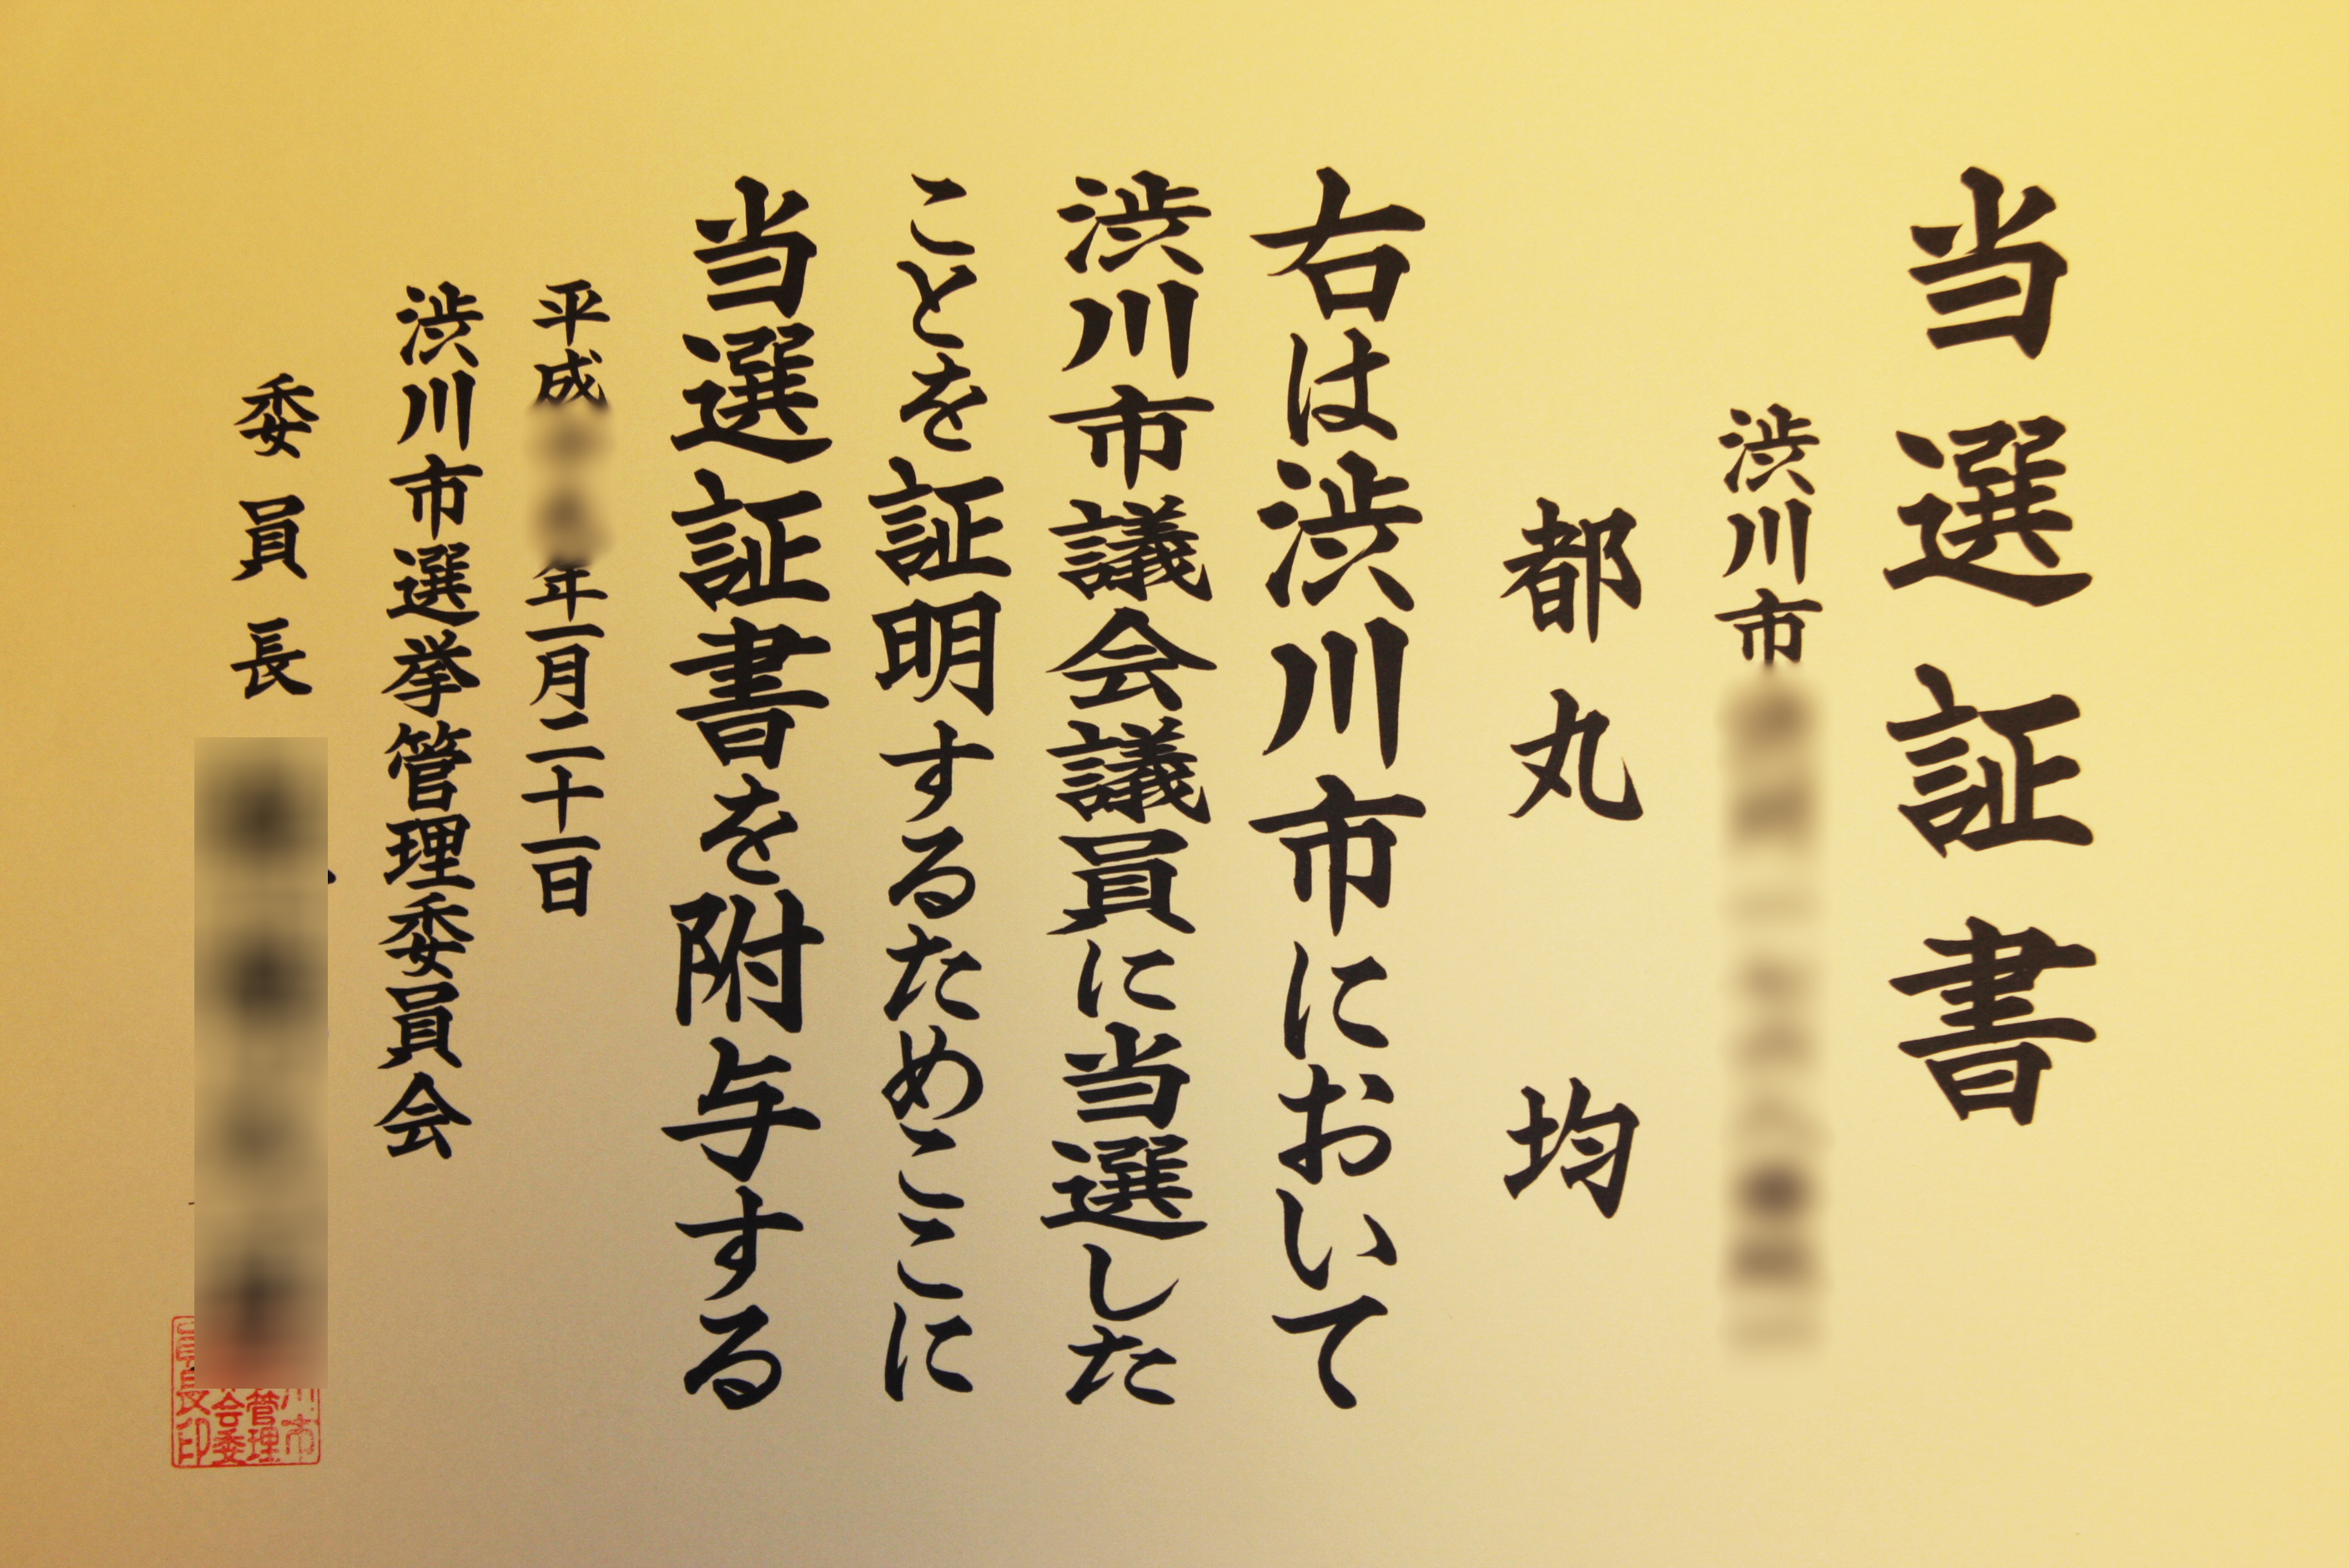 当選証書
渋川市
都丸 均
右は渋川市において
渋川市議会議員に当選した
ことを証明するためここに
当選証書を附与する
平成 年一月二十一日
渋川市選挙管理委員会
委員長
川市
管理
会委
員長印